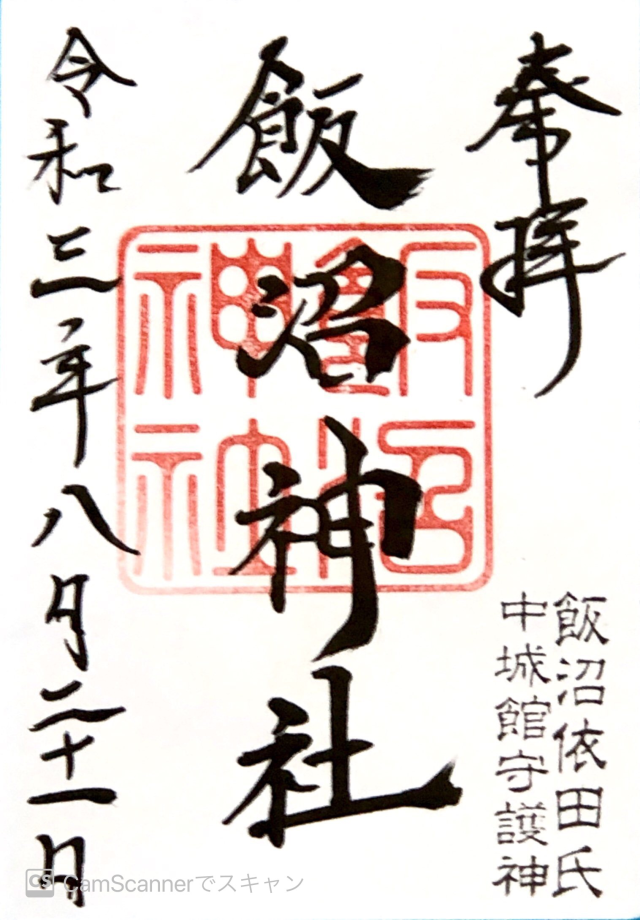 奉拝
飯沼依田氏
中城館守護神
飯沼神社
飯沼神社
令和三年八月二十一日
CS CamScannerでスキャン